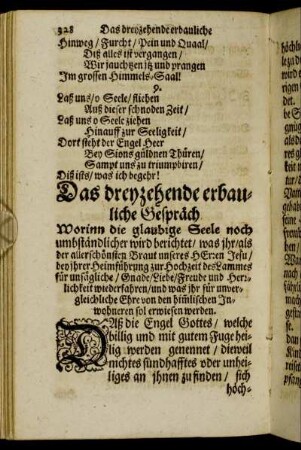 928 Das dreyzehende erbauliche
Hinweg / Furcht / Pein und Quaal /
Diß alles ist vergangen /
Wir jauchtzen itz und prangen
Im grossen Himmels-Saal!
9.
Laß uns / o Seele / fliehen
Auß dieser schnoden Zeit /
Laß uns o Seele ziehen
Hinauff zur Seeligkeit /
Dort steht der Engel Heer
Bey Sions güldnen Thüren /
Sampt uns zu triumphiren /
Diß ists / was ich begehr!
Das dreyzehende erbau-
liche Gespräch
Worinn die glaubige Seele noch
umbständlicher wird berichtet / was ihr / als
der allerschönsten Braut unseres HErren Jesu /
bey ihrer Heimführung zur Hochzeit des Lammes
für unsägliche / Gnade / Liebe / Freude und Herr-
lichkeit wiederfahren / und was ihr für unver-
gleichliche Ehre von den hiṁlischen In-
wohneren sol erwiesen werden.
DAß die Engel Gottes / welche
billig und mit gutem Fuge hei-
lig werden genennet / dieweil
nichtes sündhafftes oder unhei-
liges an ihnen zu finden / sich
höch-